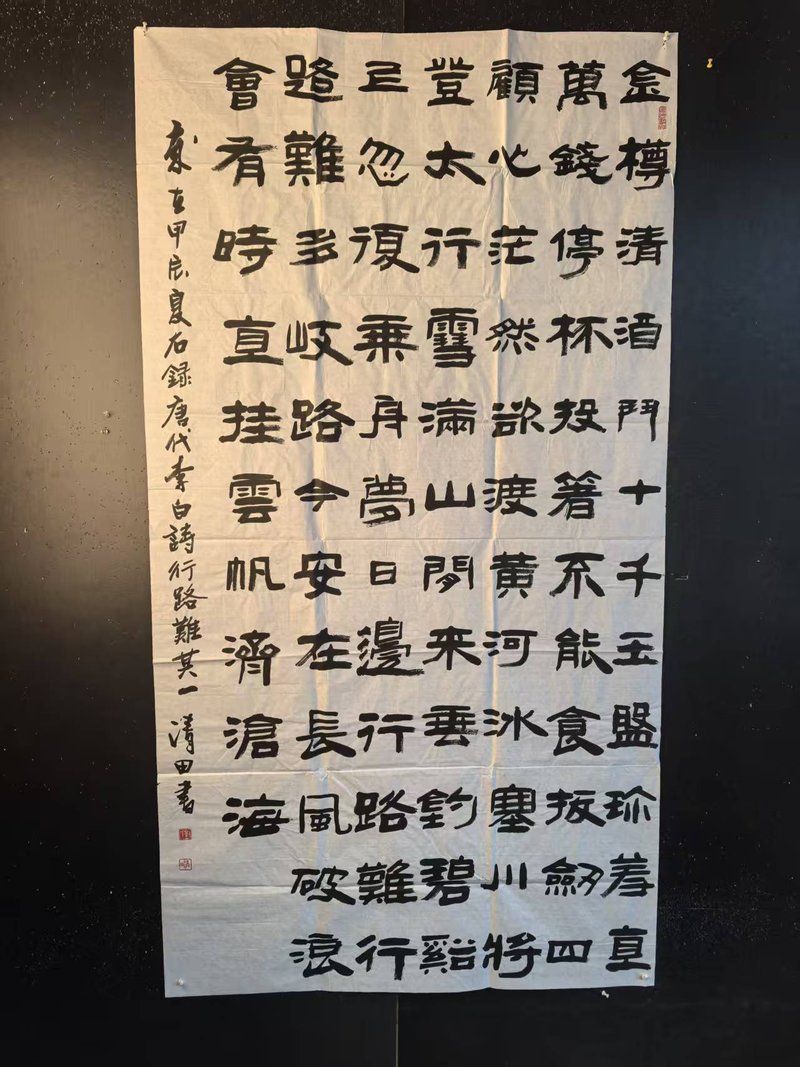 金樽清酒鬥十千玉盤珍羞直
萬錢停杯投箸不能食拔劍四
顧心茫然欲渡黃河冰塞川將
登太行雪滿山閒來垂釣碧谿
上忽復乘舟夢日邊行路難行
路難多岐路今安在長風破浪
會有時直挂雲帆濟滄海
歲在甲辰夏右錄唐代李白詩行路難其一 清田書